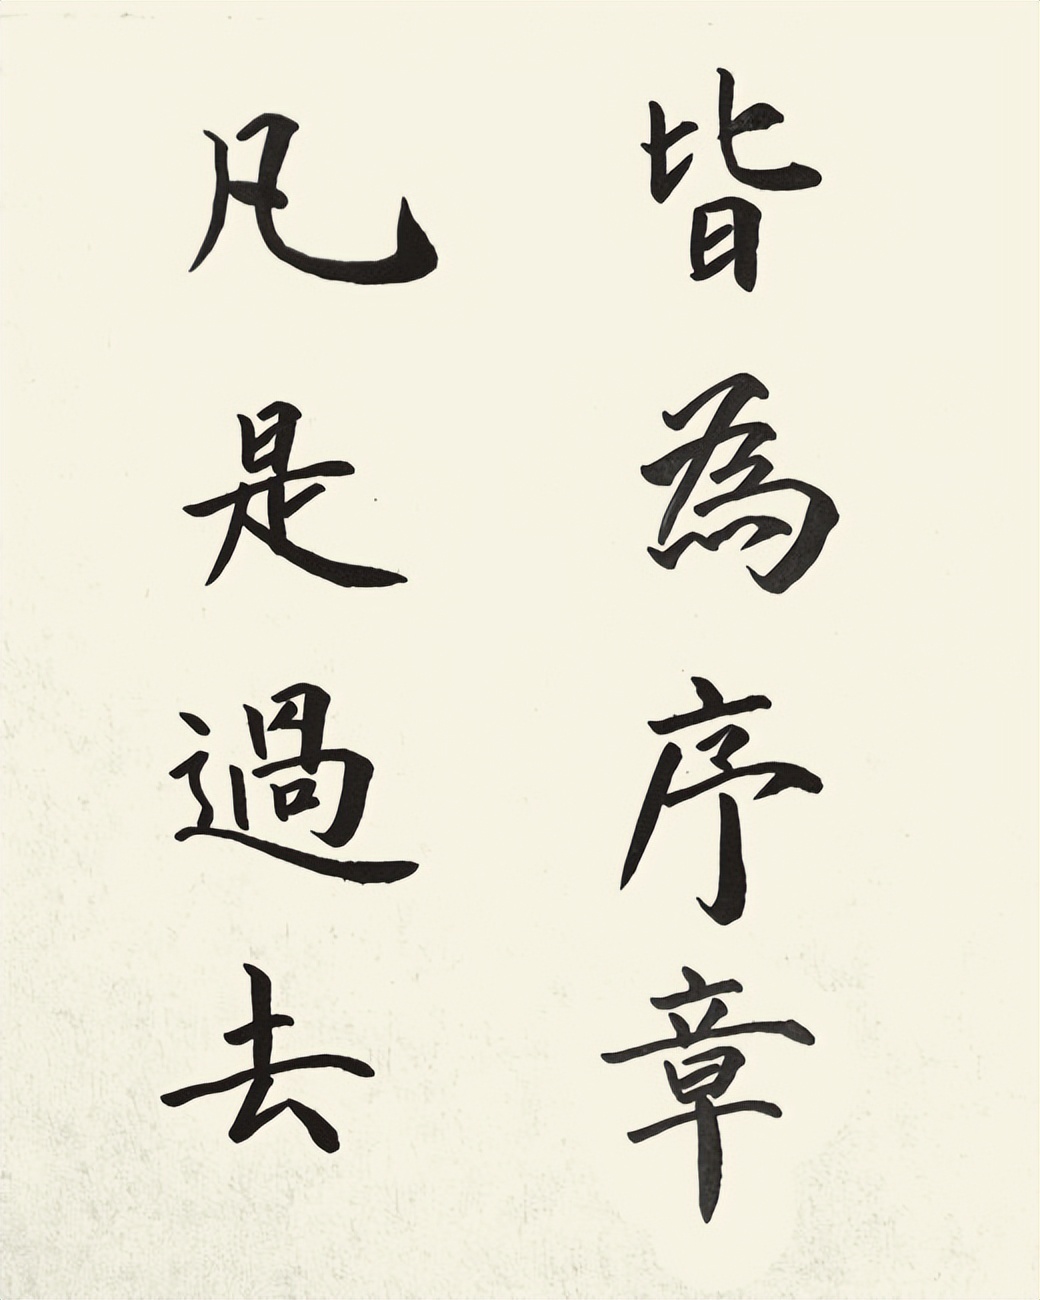 凡是過去
皆為序章